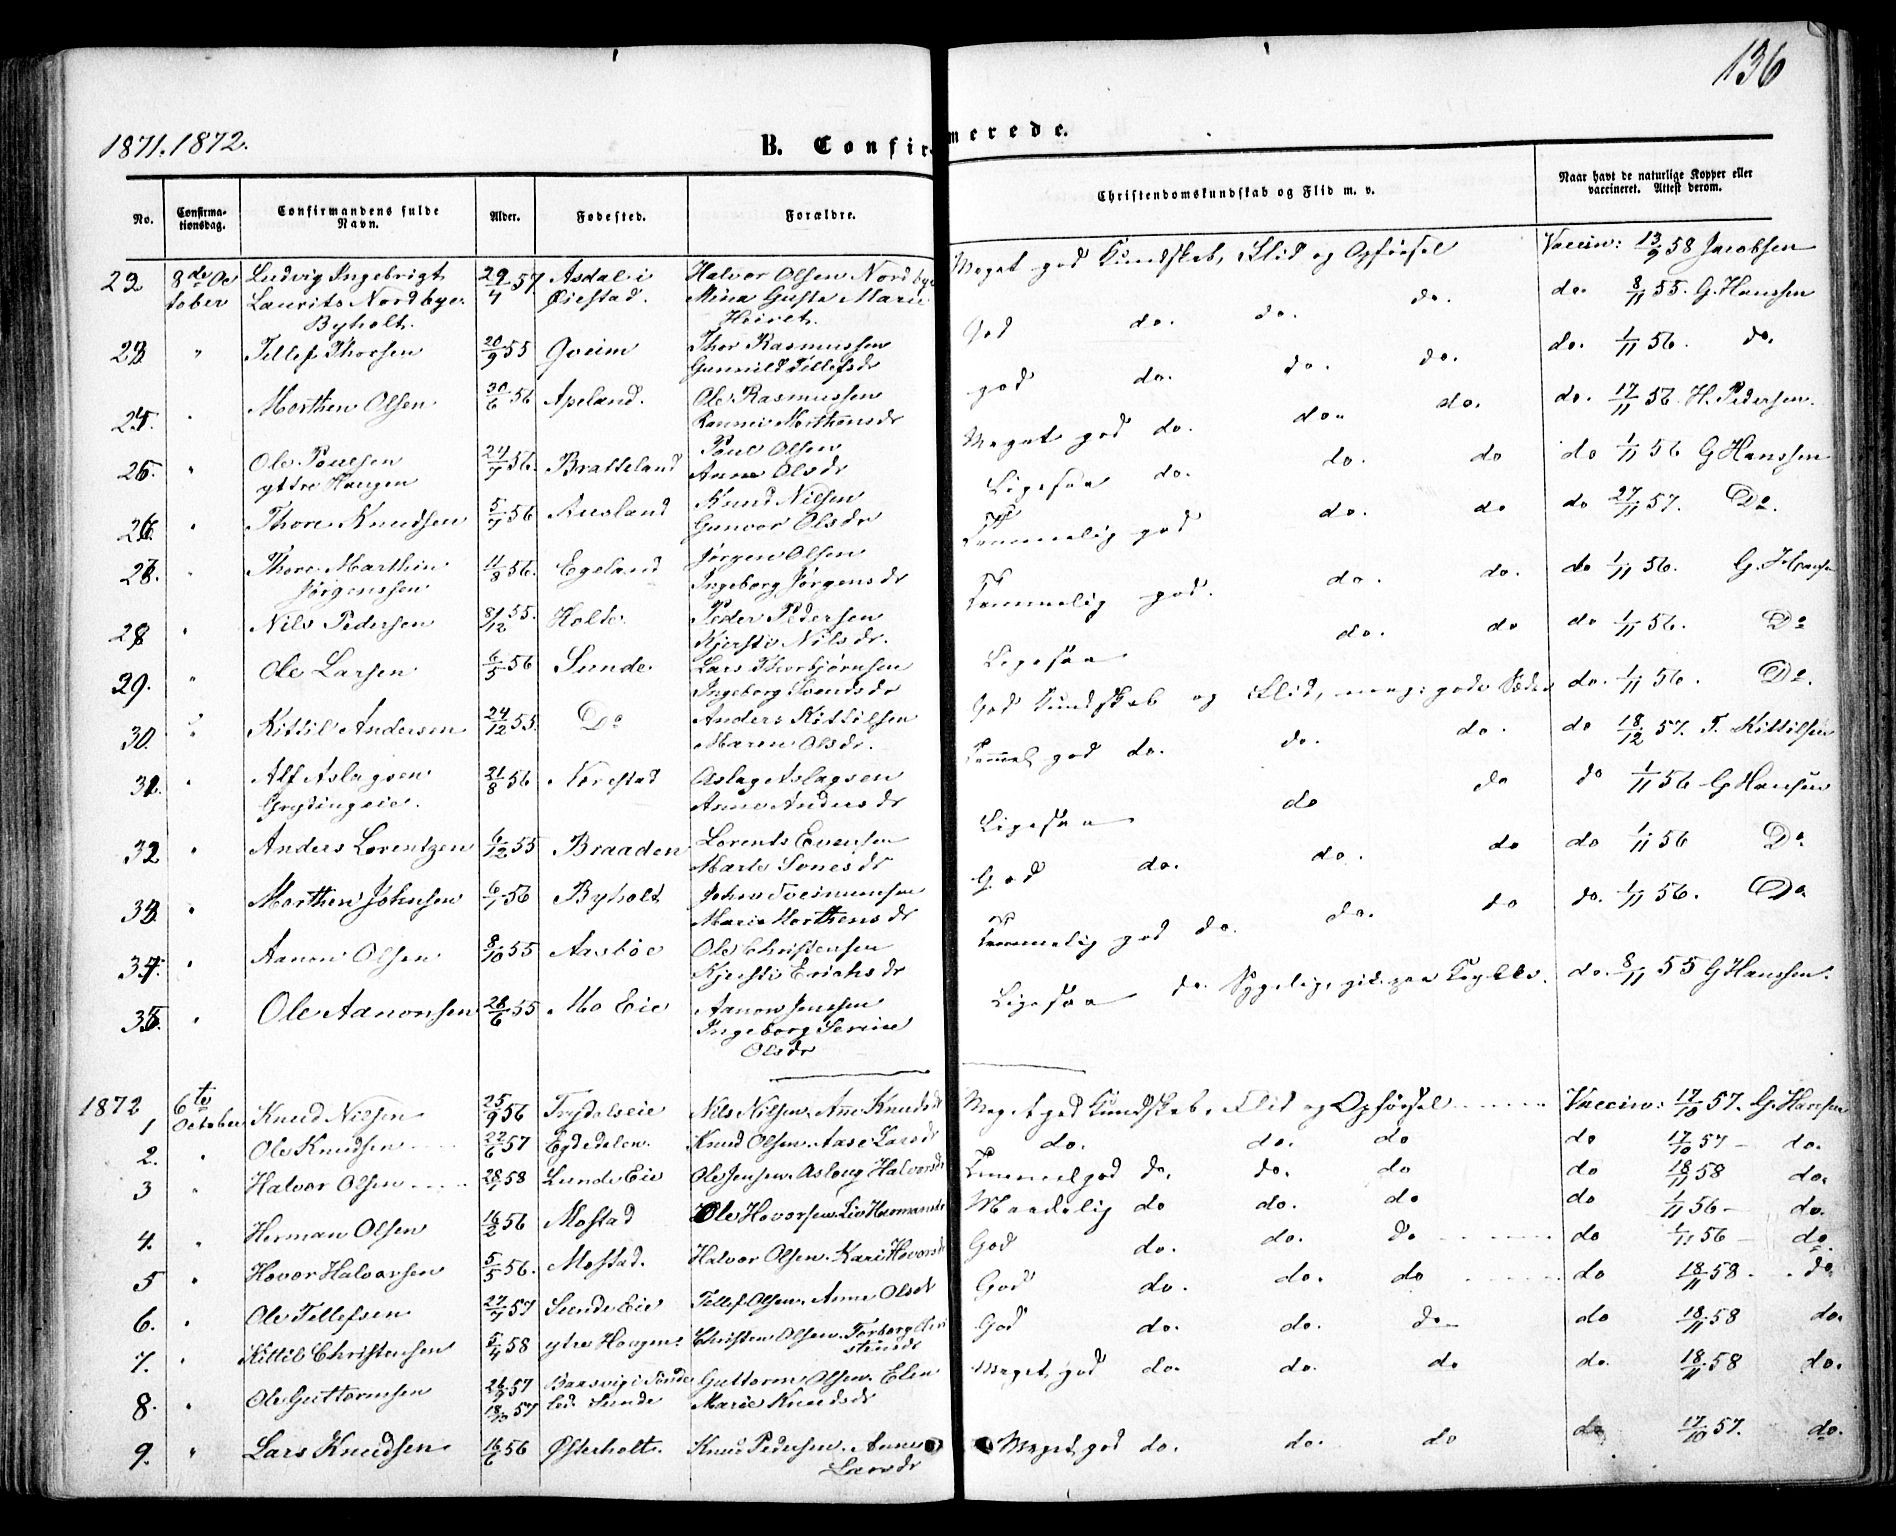 136
1871. 1872.
B. Confirmerede.
No.
Confirma-
tionsdag.
Confirmandens fulde
Navn.
Alder.
Fødested.
Forældre.
Christendomskundskab og Flid m. v.
Naar havt de naturlige Kopper eller
vaccineret. Attest derom.
22 8de Oc Ludvig Ingebrigt 29/4 57 Asdal i Halvor Olsen Nordbye Meget god Kundskab, Flid og Opførsel Vaccin: 13/9 58 Jacobsen
tober Laurits Nordbye Øiestad. Mina Gusta Marie
Byholt.
23 " Tellef Thorsen 20/9 55 Qveim Thor Rasmussen God do. do. do. do. 8/11 55. G. Hanssen
Gunnild Tellefsdr
24. " Morthen Olsen 30/6 56 Apeland. Ole Rasmussen god do. do. do. do. 1/11 56. do.
Morthensdr
25. " Ole Poulsen 56. Bratteland Poul Olsen Meget god do. do. do. do. 17/11 56 H. Pedersen.
ytdre Haugen Anne Olsdr
26. " Thore Knudsen 5/7 56 Ausland Knud Nilsen Ligesaa do. do. do do 1/11 56 G Hanssen
Gunvor Olsdr
27. " Thore Marthin 11/8 56. Egeland Jørgen Olsen Temmelig god do. do do 27/11 57. Do.
Jørgenssen Ingeborg Jørgensdr
28 " Nils Pedersen 55. Holte Peder Pedersen Temmelig god. do. do. do 1/11 56. G. Hanssen
12 Kjersti Nilsdr.
29. " Ole Larsen 6/5 56 Sunde Lars Thorbjørnsen Ligesaa do. do do 1/11 56. Do
Ingeborg Svendsdr
30. " Kittil Andersen 24/12 55. Do Anders Kittilsen God Kundskab og Flid, meg: gode Sæder do. 1/11 56. Do.
Maren Olsdr.
31. " Alf Aslagsen 21/8 56 Nærestad Aslag Aslagsen Temmel god do. do. do. do 18/12 57. T. Kittilsen
Grydingeie. Anne Andersdr
32 " Anders Lorentzen 6/12 55 Braaden Lorents Evensen Ligesaa do do do 1/11 56 G Hanssen
Marte Tonesdr
33. " Morthen Johnsen 56 Byholt John God do. do. do do 1/11 56 Do
Marie Morthensdr
34. " Aanon Olsen 8/10 55 Aasbøe Ole Christensen Temmelig god do. do. do do. 1/11 56. Do
Kjersti Erichsdr
35. " Ole Aanonsen 26/6 55 Mo Eie Aanon Jenssen Ligesaa do Sygelig, gik paa Krykke. do. 8/11 55 G Hanssen.
Ingeborg Serine
Olsdr
1872 6te
1 October Knud Nilsen 25/9 56 Trydalseie Nils Nilsen, Ane Knudsdt Meget god Kundskab, Flid og Opførsel Vaccin: 17/10 57. G. Hanssen
2. " Ole Knudsen 22/6 57 Egdedalen. Knud Olsen, Aase Larsdr do. do. do do 17/10 57 – do.
3 " Halvor Olsen 28/1 58 Lunde Eie Ole Jensen, Aslaug Halvorsdr Temmel god do. do. do do 18/11 58 do.
4. " Herman Olsen 16/2 56 Mostad Ole Hovorsen, Liv Hermansdr Maadelig do do. do do 1/11 56 – do.
5 " Hovor Halvorsen 5/5 56. Mostad. Halvor Olsen. Kari Hovorsdr God do. do. do do 1/11 56 – do.
6. " Ole Tellefsen 27/7 57 Sunde Eie Tellef Olsen, Anne Olsdt God do. do. do do 18/11 58. do
7. " Kittil Christensen 5/4 58 ytre Haugen Christen Olsen, Torborg Chri God do. do. do do 18/11 58 do.
stensdr
8. " Ole Guttormsen 26/9 57 Baasvig i Sønde Guttorm Olsen, Elen Meget god do. do. do do. 18/11 58 do.
18/10 57 led Sunde Marie Knudsdr
9. " Lars Knudsen 16/6 56 Østerholt. Knud Pedersen, Anne Meget god do. do. do do 17/10 57. do.
Larsdr